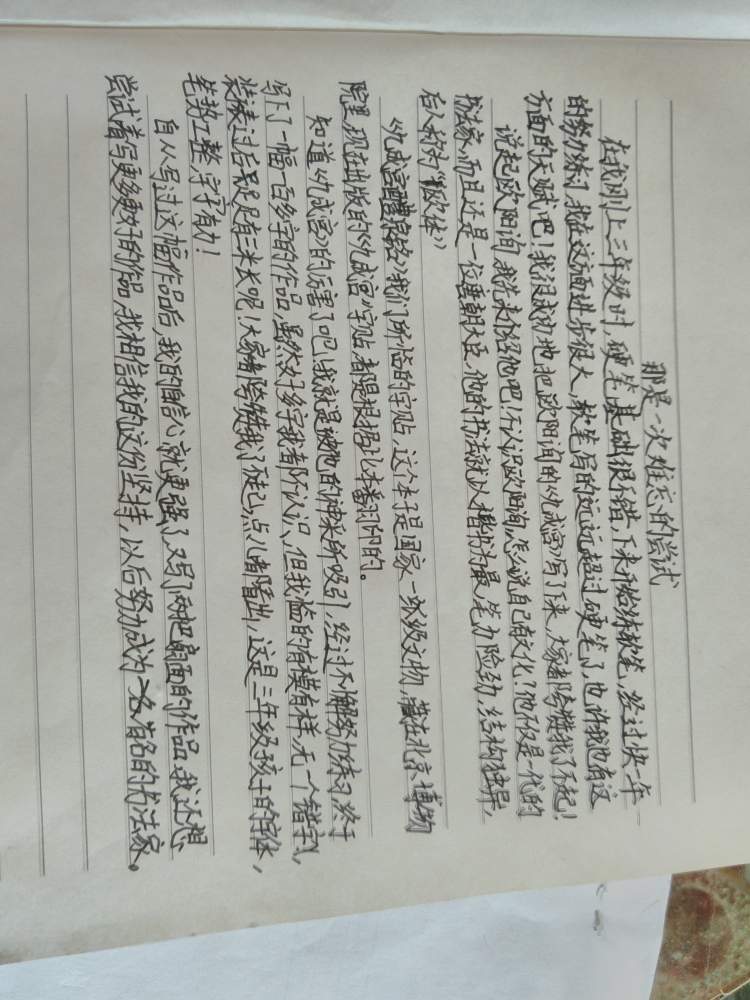 那是一次难忘的尝试
在我刚上三年级时,硬笔基础很不错,下来开始练软笔,经过快一年
的努力练习,我在这方面进步很大,软笔写的远远超过硬笔了,也许我也有这
方面的天赋吧!我很成功地把欧阳询的《九成宫》写了下来,大家都夸赞我了不起!
说起欧阳询,我先来介绍他吧!不认识欧阳询,怎么说自己有文化?他不仅是一代的
书法家,而且还是一位唐朝大臣,他的书法就以楷书为最,笔力险劲,结构独异,
后人称为“欧体”
《九成宫醴泉铭》我们所临的字贴,这个本子是国家一级文物,藏在北京博物
院里,现在出版的《九成宫》字贴,都是根据此本翻印的。
知道《九成宫》的厉害了吧!我就是被他的神采所吸引,经过不懈努力练习,终于
写下了一幅一百多字的作品,虽然好多字我都不认识,但我临的有模有样,无一个错字,
装裱过后足足有三米长呢!大家都夸赞我了不起,点儿都看出,这是三年级孩子的字体,
笔势工整,字字有力!
自从写过这幅作品后,我的自信心就更强了,又写了两把扇面的作品,我还想
尝试着写更多更好的作品,我相信我的这份坚持,以后努力成为一名有名的书法家。